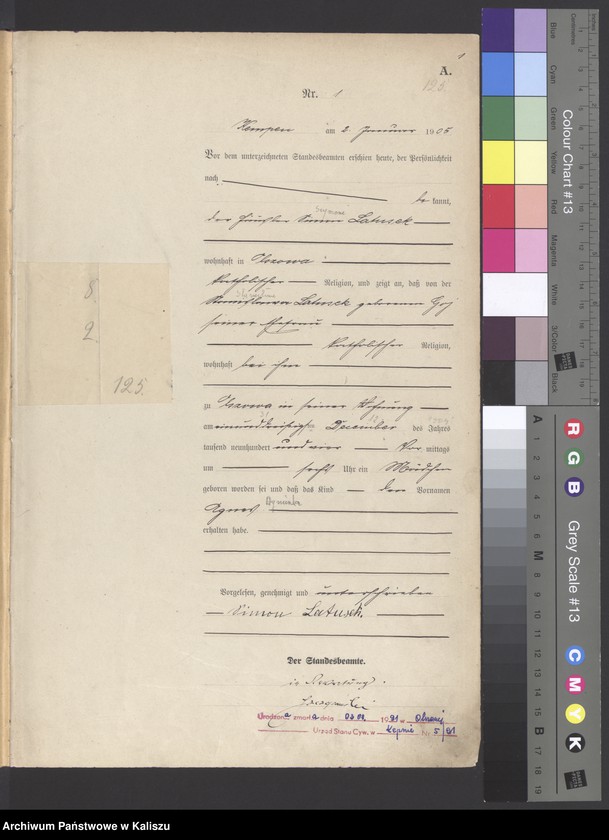 1
A.
125.
Nr. 1
Kempen am 2 Januar 1905
Vor dem unterzeichneten Standesbeamten erschien heute, der Persönlichkeit
nach, be kannt,
Szymon
der Häusler Simon Latusek
wohnhaft in
katholischer Religion, und zeigt an, daß von der
Stanisława
Latusek geborenen
seiner Ehefrau
katholischer Religion,
wohnhaft bei ihm
zu in seiner Wohnung
am einunddreißigsten December des Jahres
tausend neunhundert und vier Vor mittags
um sechs Uhr ein Mädchen
geboren worden sei und daß das Kind den Vornamen
Agnieszka
Agnes
erhalten habe.
Vorgelesen, genehmigt und unterschrieben
Simon Latusek.
Der Standesbeamte.
in Vertretung.
zmarła dnia 1981 w
Urząd Stanu Cyw. w Kępnie Nr 5/81
8.
2.
125
Colour Chart #13
Blue
Cyan
Green
Yellow
Red
Magenta
White
3/Color
Black
Centimetres
Inches
Grey Scale #13
R
G
B
C
M
Y
K
A 1 2 3 4 5 6 M 8 9 10 11 12 13 14 15 B 17 18 19
Archiwum Państwowe w Kaliszu